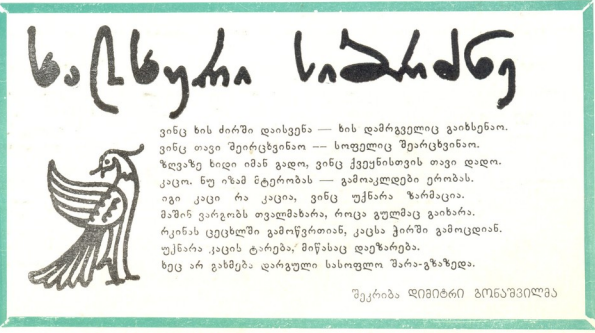 ხალხური სიბრძნე
ვინც ხის ძირში დაისვენა — ხის დამრგველიც გაიხსენაო.
ვინც თავი შეირცხვინაო — სოფელიც შეარცხვინაო.
ზღვაზე ხიდი იმან გადო, ვინც ქვეყნისთვის თავი დადო.
კაცო. ნუ იზამ მტერობას — გამოაკლდები ერობას.
იგი კაცი რა კაცია, ვინც უქნარა ზარმაცია.
მაშინ ვარგობს თვალმახარა, როცა გულმაც გაიხარა.
რკინას ცეცხლში გამოწვრთიან, კაცსა ჭირში გამოცდიან.
უქნარა კაცის ტარება, მიწასაც დაეზარება.
ხეც არ გახმება დარგული სასოფლო შარა-გზაზედა.
შეკრიბა დიმიტრი გონაშვილმა